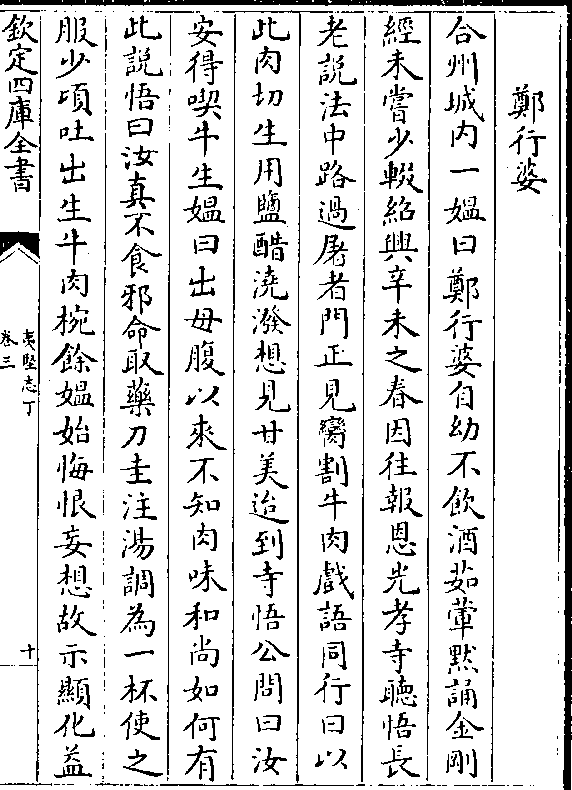 鄭行婆
合州城内一媪曰鄭行婆自幼不飲酒茹葷默誦金剛
經未嘗少輟紹興辛未之春因往報恩光孝寺聽悟長
老説法中路過屠者門正見臠割牛肉戲語同行曰以
此肉切生用鹽醋澆潑想見甘美迨到寺悟公問曰汝
安得喫牛生媪曰出母腹以來不知肉味和尚如何有
此説悟曰汝真不食邪命取藥刀圭注湯調為一杯使之
服少項吐出生牛肉椀餘媪始悔恨妄想故示顯化益
欽定四庫全書
夷堅志丁
卷三
十